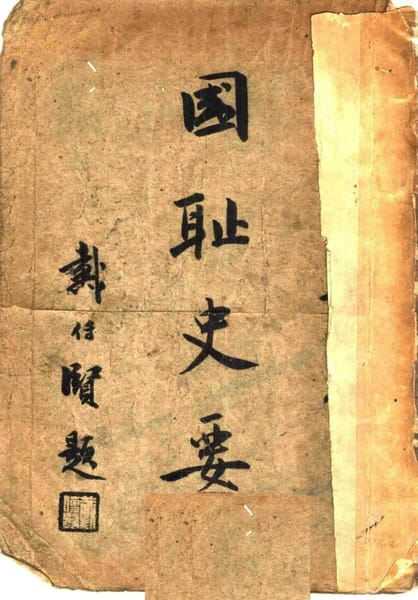 國耻史要
戴傳賢題